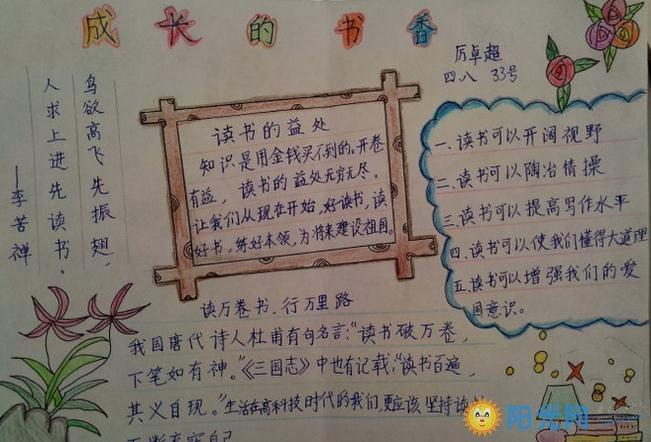 成长的书香
厉卓超
四.八 33号
鸟欲高飞先振翅,
人求上进先读书。
——李苦禅
读书的益处
知识是用金钱买不到的。开卷
有益, 读书的益处无穷无尽。
让我们从现在开始,好读书,读
好书,练好本领,为将来建设祖国。
一.读书可以开阔视野
二.读书可以陶冶情操
三.读书可以提高写作水平
四.读书可以使我们懂得大道理
五.读书可以增强我们的爱
国意识。
读万卷书,行万里路
我国唐代诗人杜甫有句名言:“读书破万卷,
下笔如有神。”《三国志》中也有记载:“读书百遍,
其义自现。”生活在高科技时代的我们,更应该坚持读
不断充实自己
阳光网